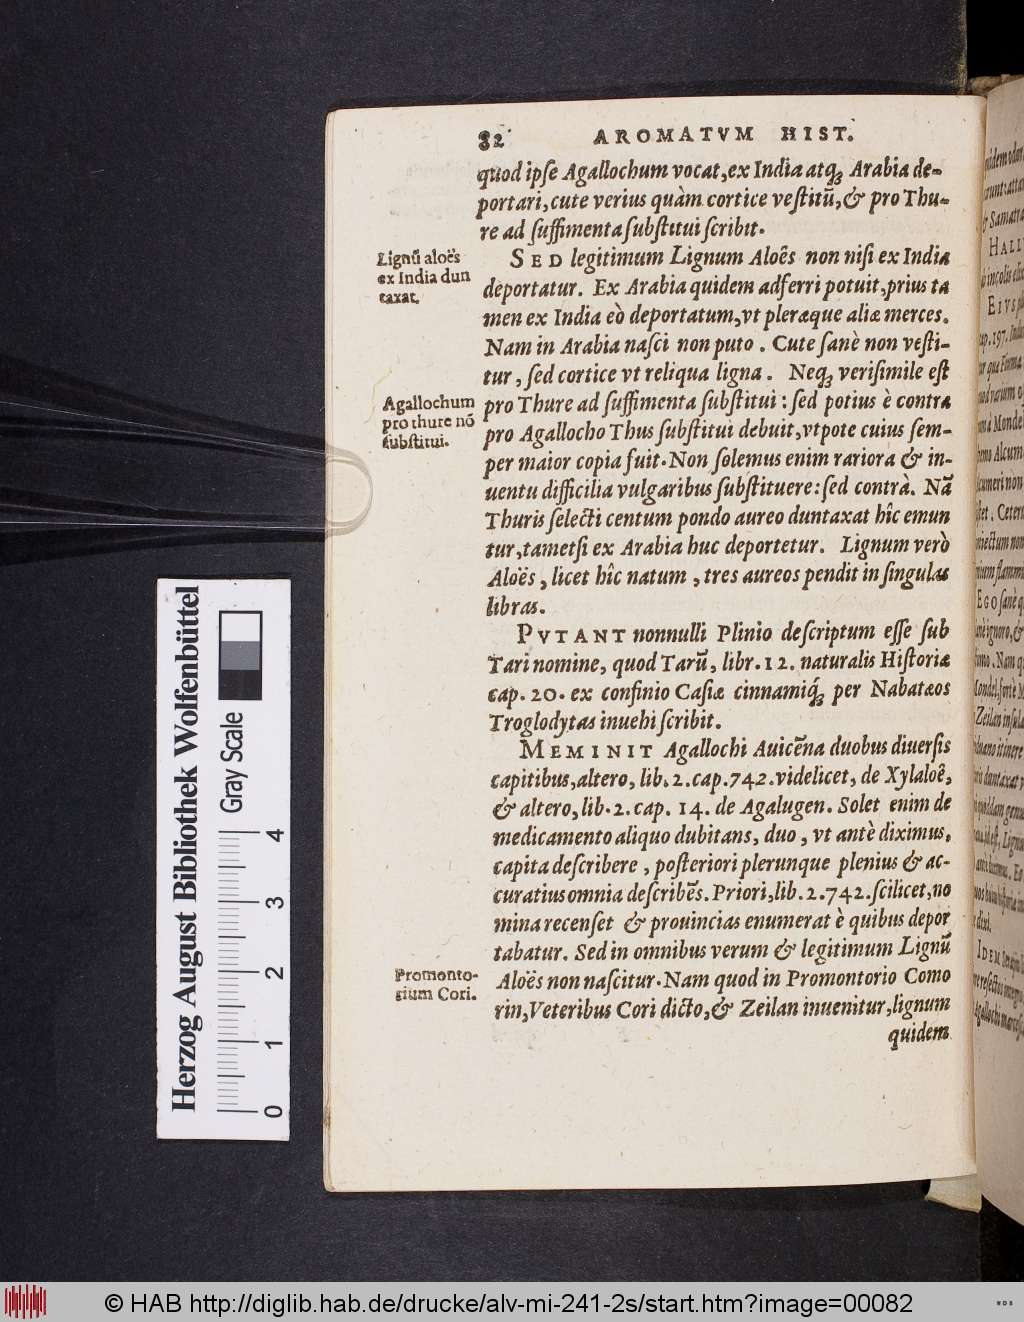 82 AROMATVM HIST.
quod ipſe Agallochum vocat,ex India atq; Arabia de-
portari,cute verius quàm cortice veſtitũ,& pro Thu-
re ad ſuffimenta ſubſtitui ſcribit.
Lignũ aloës
ex India dun
taxat.
SED legitimum Lignum Aloês non niſi ex India
deportatur. Ex Arabia quidem adferri potuit,prius ta
men ex India eò deportatum,vt pleræque aliæ merces.
Nam in Arabia naſci non puto. Cute ſanè non veſti-
tur, ſed cortice vt reliqua ligna. Neq; veriſimile eſt
Agallochum
pro thure nõ
ſubſtitui.
pro Thure ad ſuffimenta ſubſtitui: ſed potius è contra
pro Agallocho Thus ſubſtitui debuit,vtpote cuius ſem-
per maior copia fuit. Non ſolemus enim rariora & in-
uentu difficilia vulgaribus ſubſtituere: ſed contrà. Nã
Thuris ſelecti centum pondo aureo duntaxat hîc emun
tur,tametſi ex Arabia huc deportetur. Lignum verò
Aloës, licet hîc natum, tres aureos pendit in ſingulas
libras.
PVTANT nonnulli Plinio deſcriptum eſſe ſub
Tari nomine, quod Tarũ, libr.12. naturalis Hiſtoriæ
cap. 20. ex confinio Caſiæ cinnamiq́; per Nabatæos
Troglodytas inuehi ſcribit.
MEMINIT Agallochi Auicẽna duobus diuerſis
capitibus,altero, lib.2.cap.742.videlicet, de Xylaloê,
& altero, lib.2.cap. 14. de Agalugen. Solet enim de
medicamento aliquo dubitans, duo, vt antè diximus,
capita deſcribere, poſteriori plerunque plenius & ac-
curatius omnia deſcribẽs. Priori, lib.2.742.ſcilicet,no
mina recenſet & prouincias enumerat è quibus depor
tabatur. Sed in omnibus verum & legitimum Lignũ
Promonto-
rium Cori.
Aloës non naſcitur. Nam quod in Promontorio Como
rin,Veteribus Cori dicto,& Zeilan inuenitur,lignum
quidem
HALL
EIVS
cap.197.
EGO ſanè
Zeilan
IDEM
Herzog August Bibliothek Wolfenbüttel
Gray Scale
0 1 2 3 4
© HAB http://diglib.hab.de/drucke/alv-mi-241-2s/start.htm?image=00082